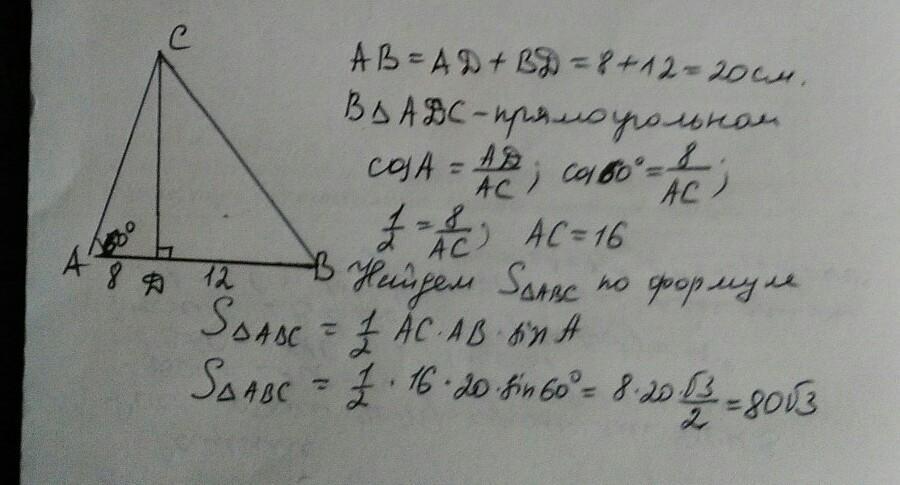 C
AB = AD + BD = 8 + 12 = 20 см.
В △ ADC - прямоугольном
cos A = AD/AC ; cos 60° = 8/AC ;
1/2 = 8/AC ; AC = 16
60°
A 8 D 12 B
Найдем S△ABC по формуле
S△ABC = 1/2 AC · AB · sin A
S△ABC = 1/2 · 16 · 20 · sin 60° = 8 · 20 · √3/2 = 80√3